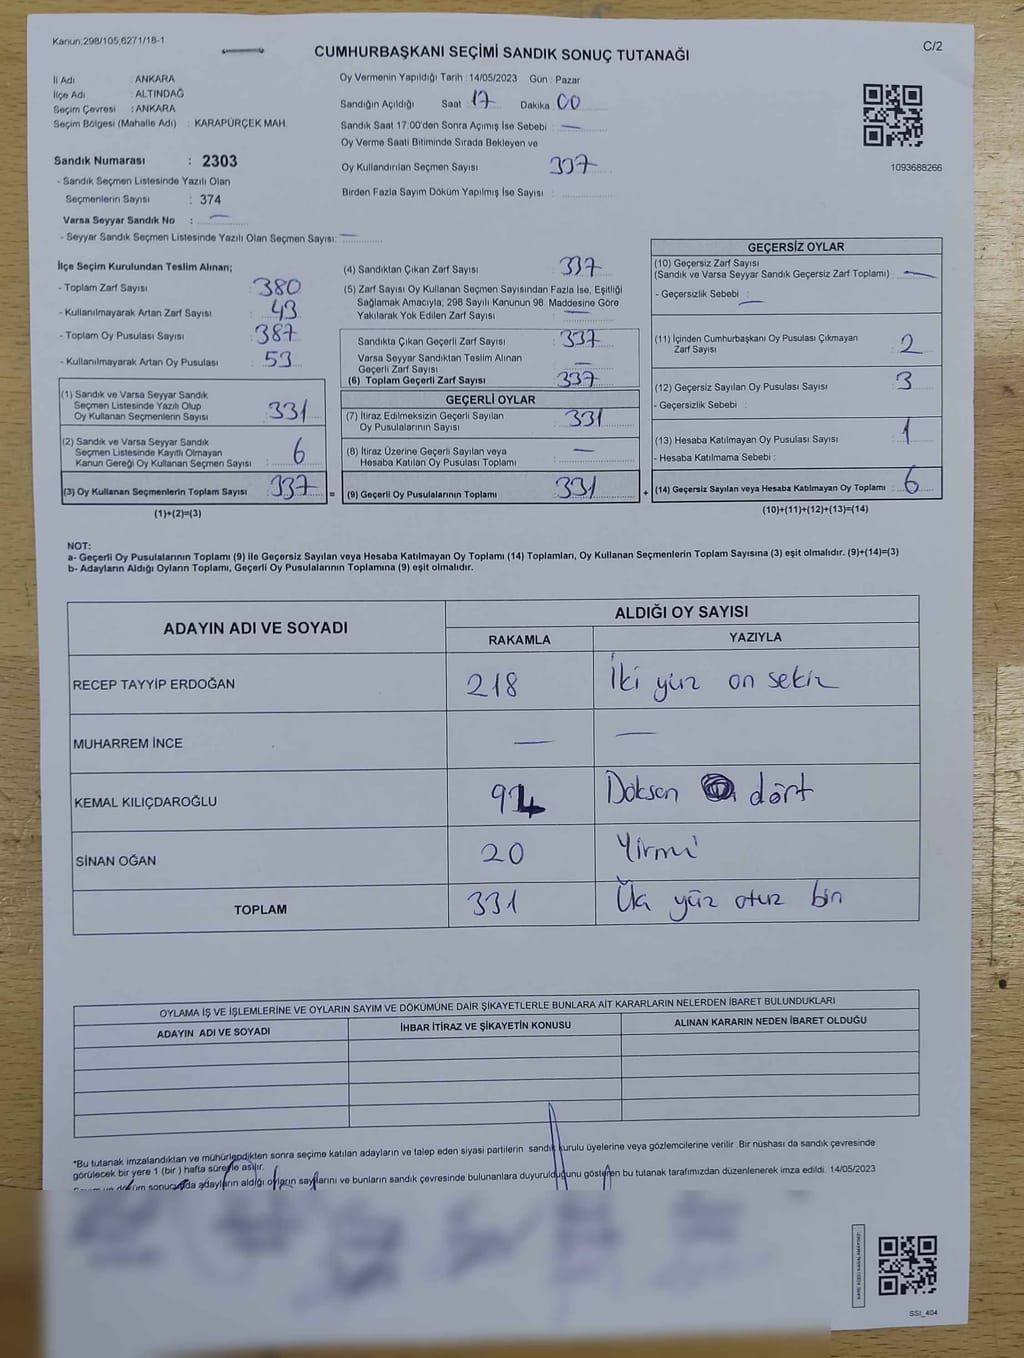 Kanun:298/105;6271/18-1
C/2
CUMHURBAŞKANI SEÇİMİ SANDIK SONUÇ TUTANAĞI
İl Adı : ANKARA
İlçe Adı : ALTINDAĞ
Seçim Çevresi : ANKARA
Seçim Bölgesi (Mahalle Adı) : KARAPÜRÇEK MAH.
Sandık Numarası : 2303
- Sandık Seçmen Listesinde Yazılı Olan
Seçmenlerin Sayısı : 374
Varsa Seyyar Sandık No : —
- Seyyar Sandık Seçmen Listesinde Yazılı Olan Seçmen Sayısı: —
Oy Vermenin Yapıldığı Tarih : 14/05/2023 Gün : Pazar
Sandığın Açıldığı Saat 17 Dakika 00
Sandık Saat 17:00'den Sonra Açımış İse Sebebi : —
Oy Verme Saati Bitiminde Sırada Bekleyen ve
Oy Kullandırılan Seçmen Sayısı 337
Birden Fazla Sayım Döküm Yapılmış İse Sayısı :
1093688266
İlçe Seçim Kurulundan Teslim Alınan;
- Toplam Zarf Sayısı : 380
- Kullanılmayarak Artan Zarf Sayısı : 43
- Toplam Oy Pusulası Sayısı : 387
- Kullanılmayarak Artan Oy Pusulası : 53
(1) Sandık ve Varsa Seyyar Sandık
Seçmen Listesinde Yazılı Olup
Oy Kullanan Seçmenlerin Sayısı : 331
(2) Sandık ve Varsa Seyyar Sandık
Seçmen Listesinde Kayıtlı Olmayan
Kanun Gereği Oy Kullanan Seçmen Sayısı : 6
(3) Oy Kullanan Seçmenlerin Toplam Sayısı : 337
(1)+(2)=(3)
(4) Sandıktan Çıkan Zarf Sayısı : 337
(5) Zarf Sayısı Oy Kullanan Seçmen Sayısından Fazla İse, Eşitliği
Sağlamak Amacıyla; 298 Sayılı Kanunun 98. Maddesine Göre
Yakılarak Yok Edilen Zarf Sayısı : —
Sandıkta Çıkan Geçerli Zarf Sayısı : 337
Varsa Seyyar Sandıktan Teslim Alınan
Geçerli Zarf Sayısı : —
(6) Toplam Geçerli Zarf Sayısı : 337
GEÇERLİ OYLAR
(7) İtiraz Edilmeksizin Geçerli Sayılan
Oy Pusulalarının Sayısı : 331
(8) İtiraz Üzerine Geçerli Sayılan veya
Hesaba Katılan Oy Pusulası Toplamı : —
= (9) Geçerli Oy Pusulalarının Toplamı : 331
GEÇERSİZ OYLAR
(10) Geçersiz Zarf Sayısı
(Sandık ve Varsa Seyyar Sandık Geçersiz Zarf Toplamı) : —
- Geçersizlik Sebebi : —
(11) İçinden Cumhurbaşkanı Oy Pusulası Çıkmayan
Zarf Sayısı : 2
(12) Geçersiz Sayılan Oy Pusulası Sayısı : 3
- Geçersizlik Sebebi :
(13) Hesaba Katılmayan Oy Pusulası Sayısı : 1
- Hesaba Katılmama Sebebi :
+ (14) Geçersiz Sayılan veya Hesaba Katılmayan Oy Toplamı : 6
(10)+(11)+(12)+(13)=(14)
NOT:
a- Geçerli Oy Pusulalarının Toplamı (9) ile Geçersiz Sayılan veya Hesaba Katılmayan Oy Toplamı (14) Toplamları, Oy Kullanan Seçmenlerin Toplam Sayısına (3) eşit olmalıdır. (9)+(14)=(3)
b- Adayların Aldığı Oyların Toplamı, Geçerli Oy Pusulalarının Toplamına (9) eşit olmalıdır.
ADAYIN ADI VE SOYADI ALDIĞI OY SAYISI
RAKAMLA YAZIYLA
RECEP TAYYİP ERDOĞAN 218 İki yüz on sekiz
MUHARREM İNCE — —
KEMAL KILIÇDAROĞLU 94 Doksan dört
SİNAN OĞAN 20 Yirmi
TOPLAM 331 Üç yüz otuz bir
OYLAMA İŞ VE İŞLEMLERİNE VE OYLARIN SAYIM VE DÖKÜMÜNE DAİR ŞİKAYETLERLE BUNLARA AİT KARARLARIN NELERDEN İBARET BULUNDUKLARI
ADAYIN ADI VE SOYADI İHBAR İTİRAZ VE ŞİKAYETİN KONUSU ALINAN KARARIN NEDEN İBARET OLDUĞU
*Bu tutanak imzalandıktan ve mühürlendikten sonra seçime katılan adayların ve talep eden siyasi partilerin sandık kurulu üyelerine veya gözlemcilerine verilir. Bir nüshası da sandık çevresinde
görülecek bir yere 1 (bir) hafta süreyle asılır.
döküm sonucunda adayların aldığı oyların sayılarını ve bunların sandık çevresinde bulunanlara duyurulduğunu gösteren bu tutanak tarafımızdan düzenlenerek imza edildi. 14/05/2023
SSI_404